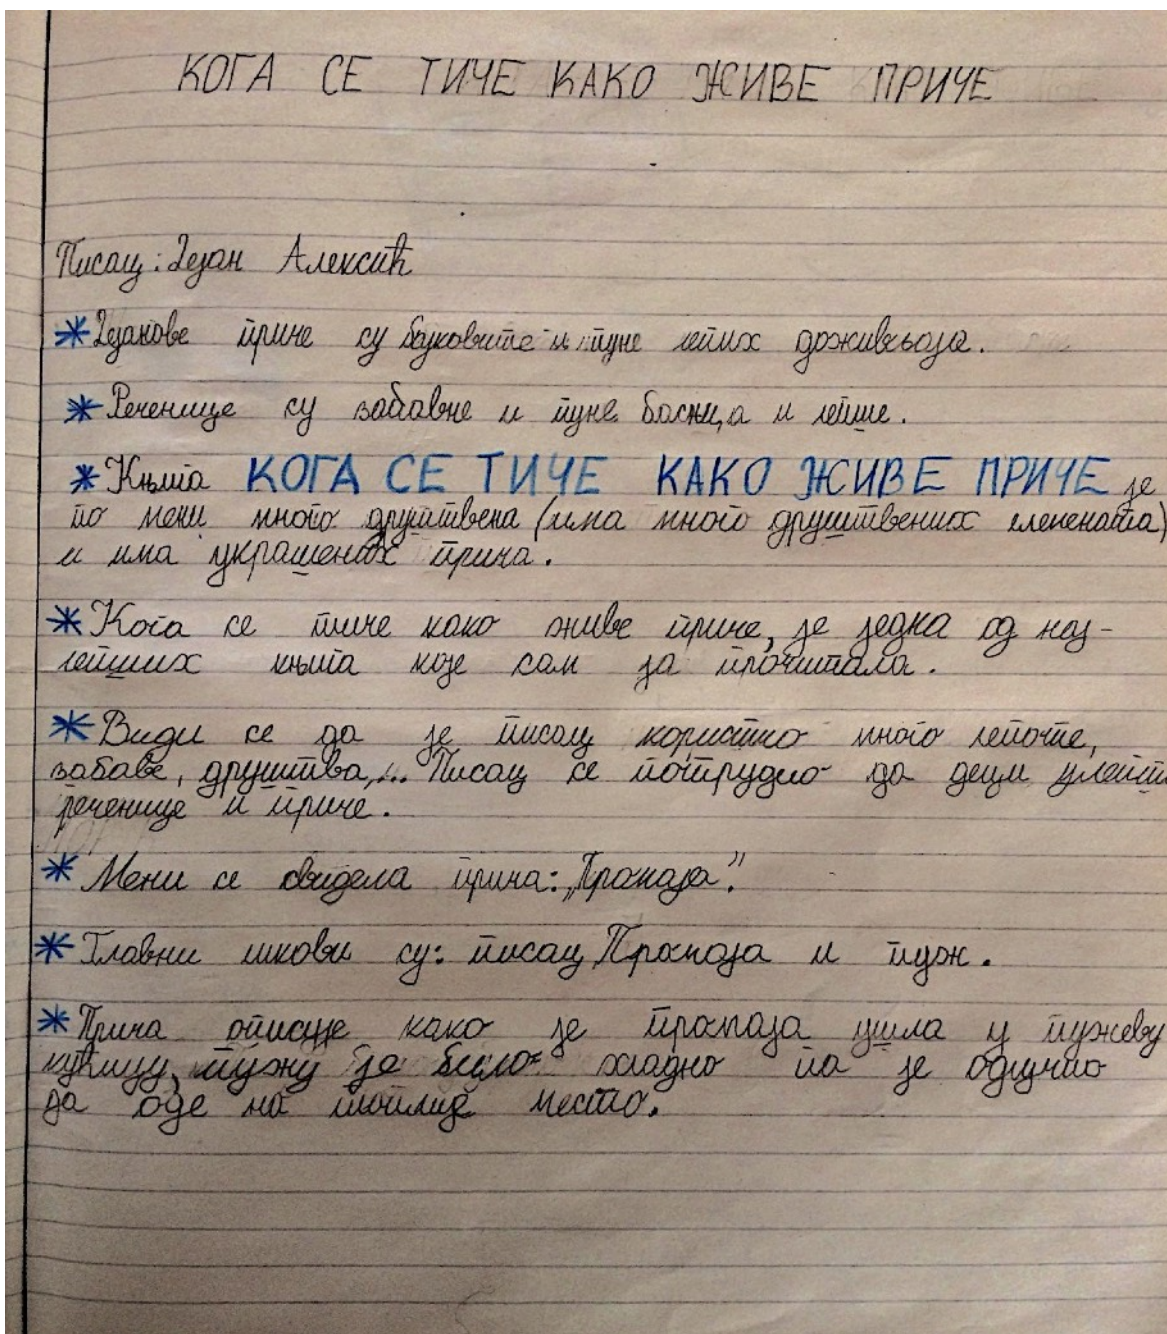 КОГА СЕ ТИЧЕ КАКО ЖИВЕ ПРИЧЕ
Писац: Дејан Алексић
* Дејанове приче су бајковите и пуне лепих доживљаја.
* Реченице су забавне и пуне и лепше.
* Књига КОГА СЕ ТИЧЕ КАКО ЖИВЕ ПРИЧЕ је
по мени много друштвена (има много друштвених елемената)
и има украшених прича.
* Кога се тиче како живе приче, је једна од нај-
лепших књига које сам ја прочитала.
* Види се да је писац користио много лепоте,
забаве, друштва,... Писац се потрудио да деци улепша
реченице и приче.
* Мени се свидела прича: „Промаја".
* Главни ликови су: писац, Промаја и пуж.
* Прича описује како је промаја ушла у пужеву
кућицу, пужу је било хладно па је одлучио
да оде на топлије место.